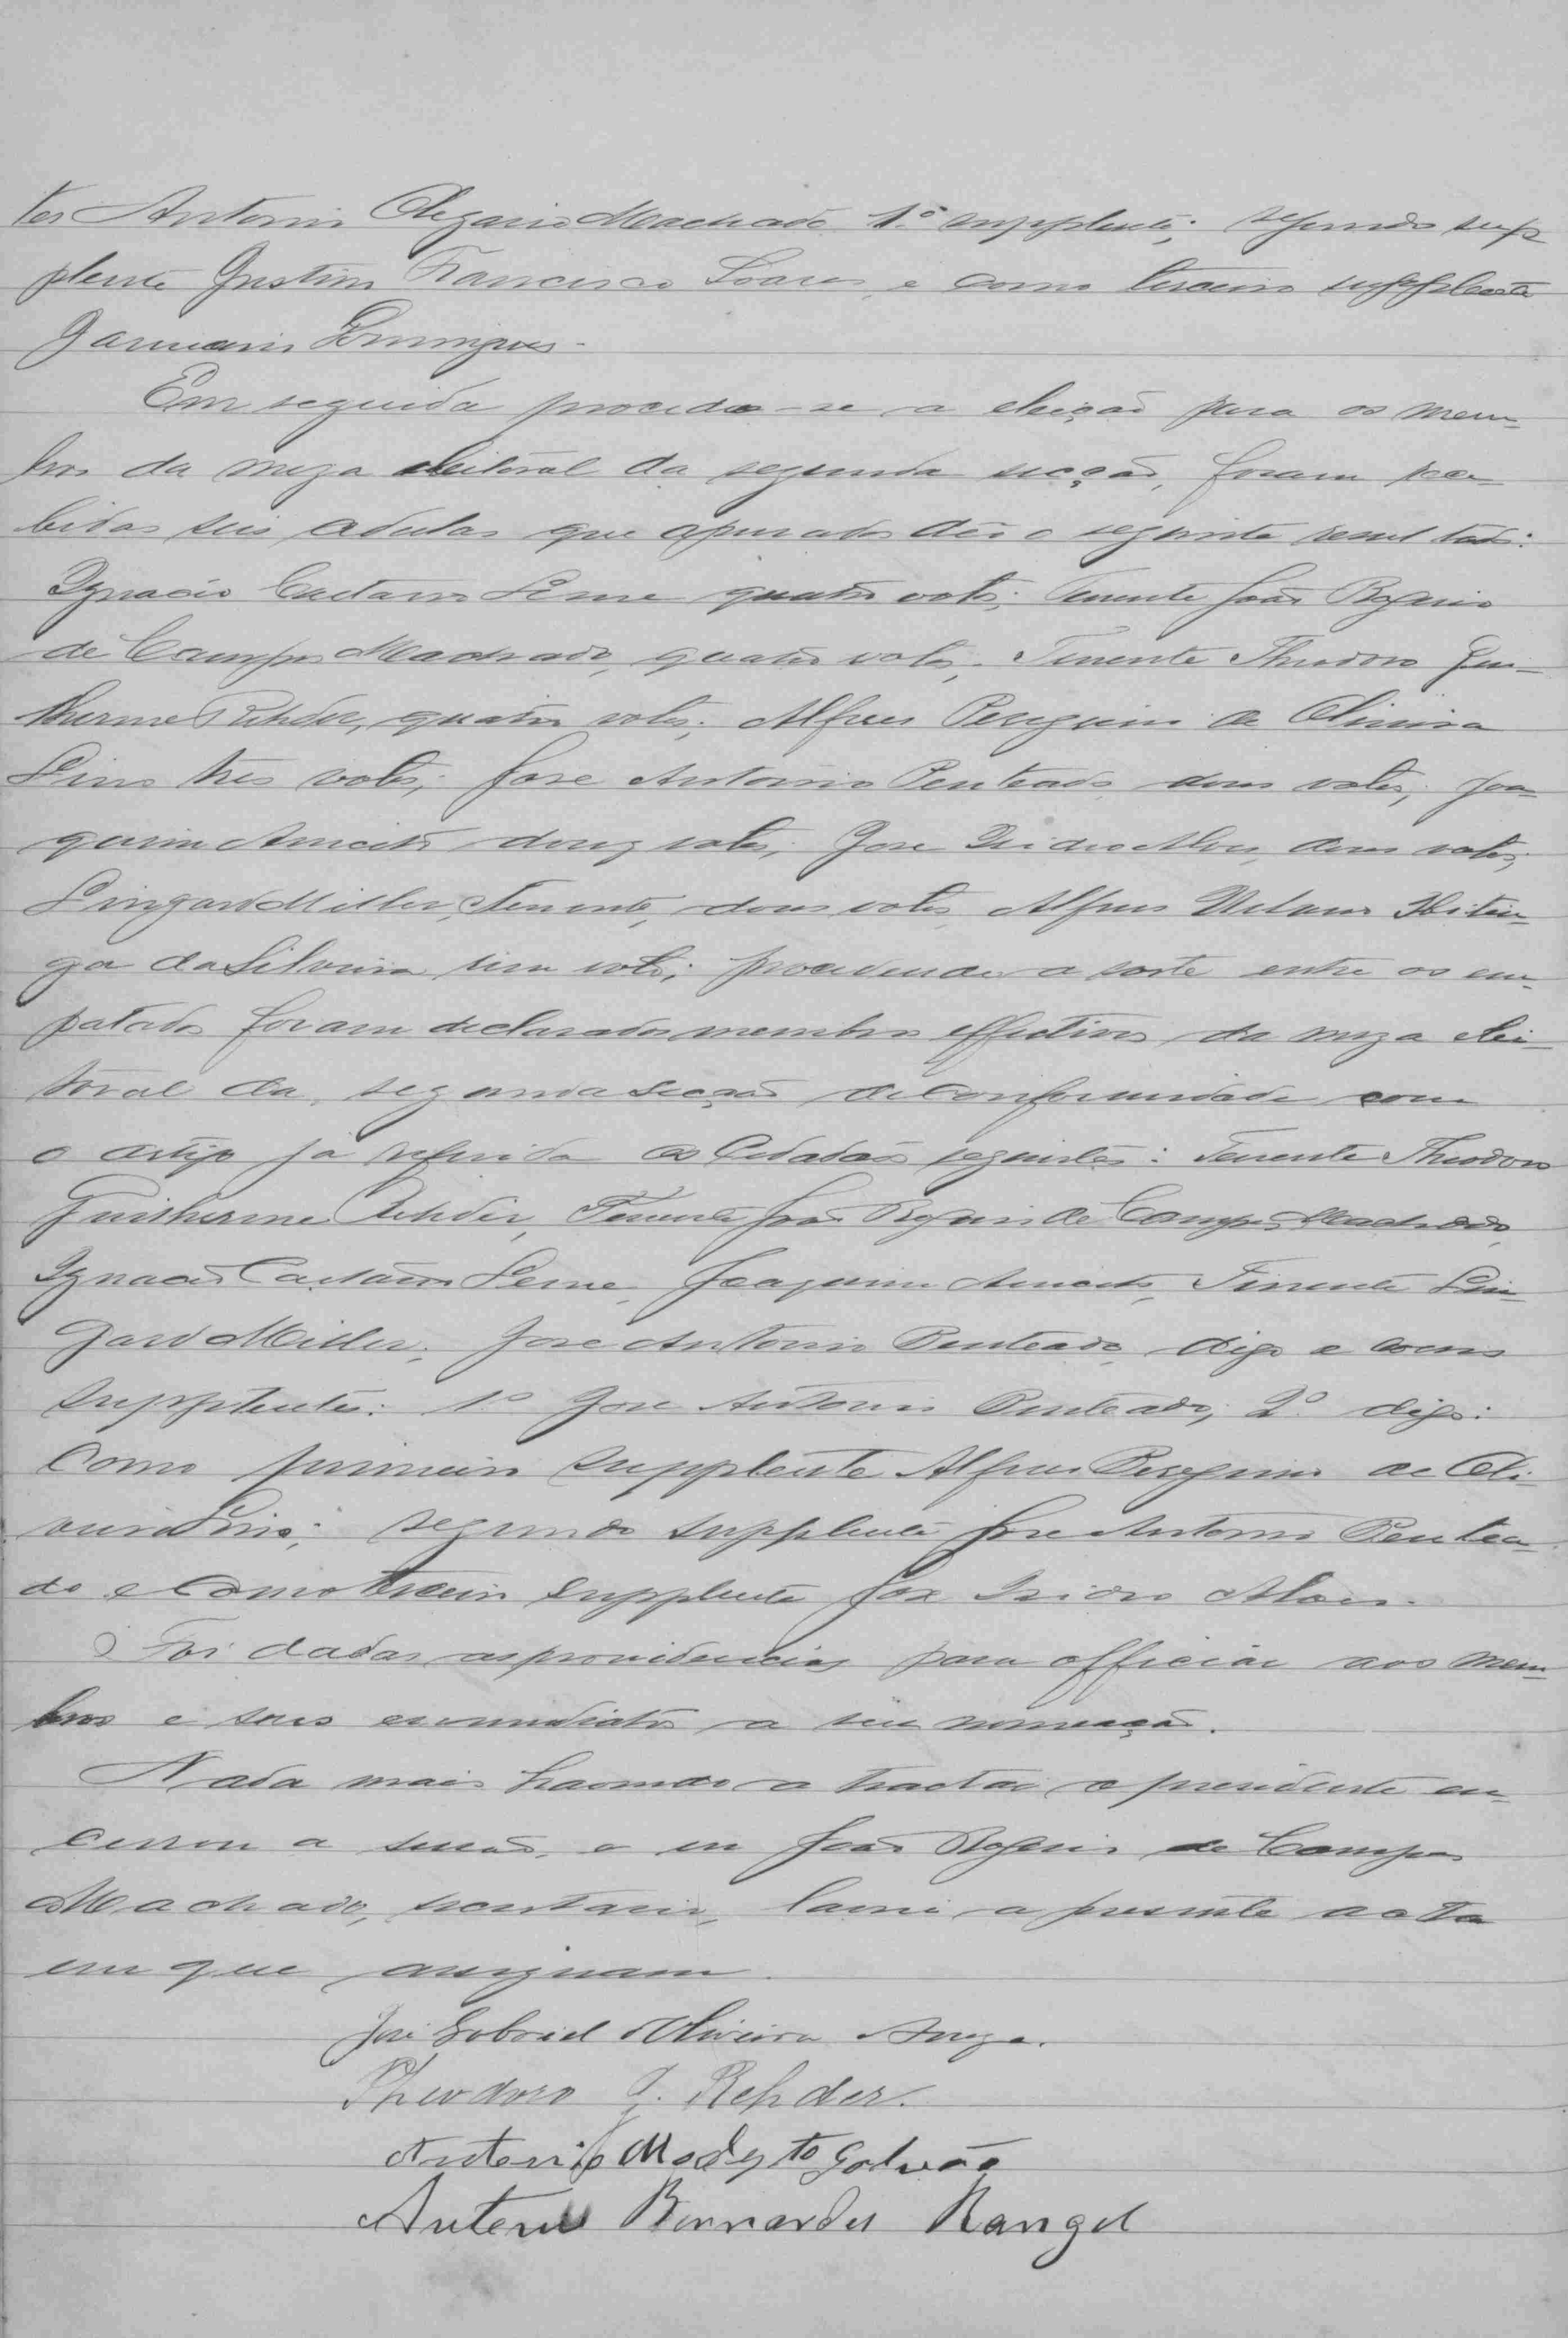 tes Antonio Olegario Machado 1.º supplente; segundo sup
plente Justino Francisco Soares, e como terceiro supplente
Januario Domingues.
Em seguida procedeo-se a eleição para os mem-
bros da meza eleitoral da segunda secção, foram rece-
bidas seis cedulas que apurados deu o seguinte resultado:
Ignacio Caetano Leme quatro votos; Tenente João Rogerio
de Campos Machado, quatro votos; Tenente Theodoro Gui-
lherme Rehder, quatro votos; Alferes Peregrino de Oliveira
Lino tres votos; José Antonio Penteado dous votos; Joa-
quim Anacleto douz votos; José Izidro Alves, dous votos;
Lingard Miller, Tenente, dous votos Alferes
ga da Silveira um voto; procedendo a sorte entre os em-
patados foram declarados membros effectivos da meza elei-
toral da segunda secção de conformidade com
o artigo já referido os Cidadãos seguintes: Tenente Theodoro
Guilherme Rehder, Tenente João Rogerio de Campos Machado,
Ignacio Caetano Leme, Joaquim Anacleto, Tenente Lin-
gard Miller; José Antonio Penteado digo e como
supplentes: 1º José Antonio Penteado; 2º digo:
Como primeiro supplente Alferes Peregrino de Oli-
veira Lino; segundo supplente José Antonio Pentea-
do e como terceiro supplente José Izidro Alves.
Foi dadas as providencias para officiar aos mem-
bros e seus immediatos a sua nomeação.
Nada mais havendo a tractar o presidente en-
cerrou a sessão, e eu João Rogerio de Campos
Machado, secretario, lavrei a presente acta
em que assignam.
José Gabriel d'Oliveira
Theodoro G. Rehder.
Antonio Modesto Galvão
Antonio Bernardes Rangel